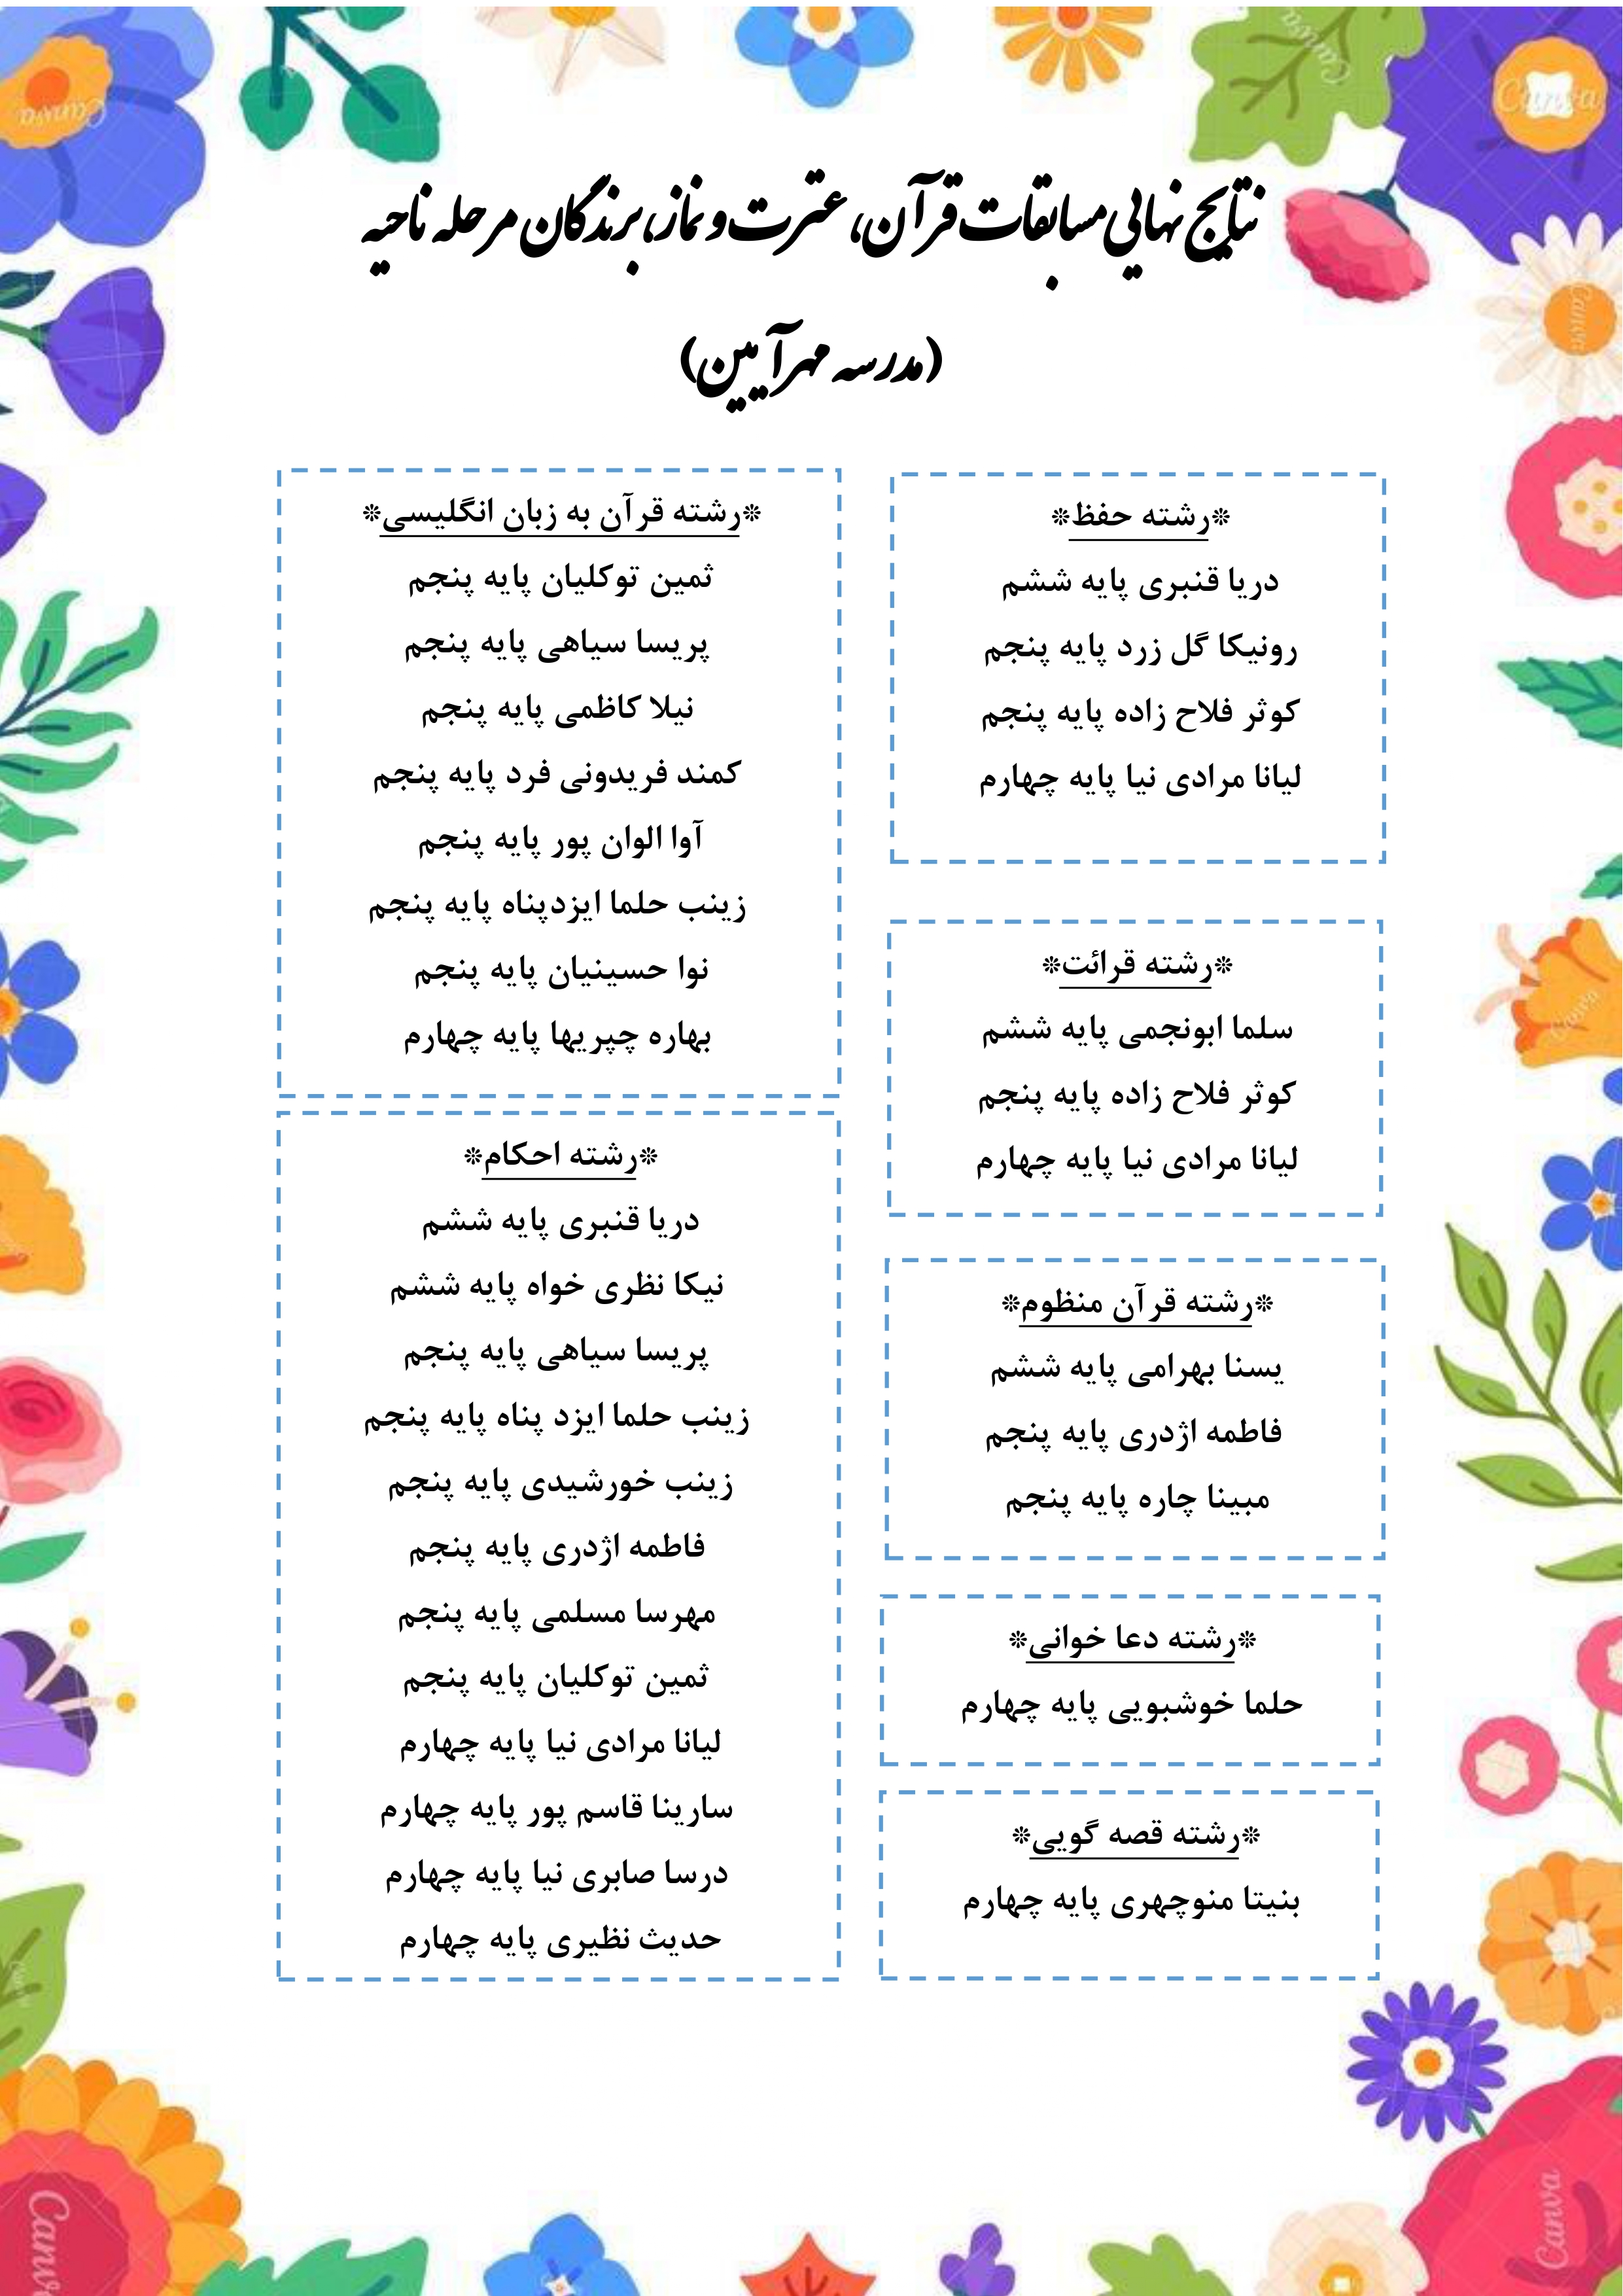 نتایج نهایی مسابقات قرآن، عترت و نماز، برندگان مرحله ناحیه
(مدرسه مهرآیین)
*رشته حفظ*
دریا قنبری پایه ششم
رونیکا گل زرد پایه پنجم
کوثر فلاح زاده پایه پنجم
لیانا مرادی نیا پایه چهارم
*رشته قرائت*
سلما ابونجمی پایه ششم
کوثر فلاح زاده پایه پنجم
لیانا مرادی نیا پایه چهارم
*رشته قرآن منظوم*
یسنا بهرامی پایه ششم
فاطمه اژدری پایه پنجم
مبینا چاره پایه پنجم
*رشته دعا خوانی*
حلما خوشبویی پایه چهارم
*رشته قصه گویی*
بنیتا منوچهری پایه چهارم
*رشته قرآن به زبان انگلیسی*
ثمین توکلیان پایه پنجم
پریسا سیاهی پایه پنجم
نیلا کاظمی پایه پنجم
کمند فریدونی فرد پایه پنجم
آوا الوان پور پایه پنجم
زینب حلما ایزدپناه پایه پنجم
نوا حسینیان پایه پنجم
بهاره چپریها پایه چهارم
*رشته احکام*
دریا قنبری پایه ششم
نیکا نظری خواه پایه ششم
پریسا سیاهی پایه پنجم
زینب حلما ایزد پناه پایه پنجم
زینب خورشیدی پایه پنجم
فاطمه اژدری پایه پنجم
مهرسا مسلمی پایه پنجم
ثمین توکلیان پایه پنجم
لیانا مرادی نیا پایه چهارم
سارینا قاسم پور پایه چهارم
درسا صابری نیا پایه چهارم
حدیث نظیری پایه چهارم
Canva
Canva
Canva
Canva
Canva
Canva